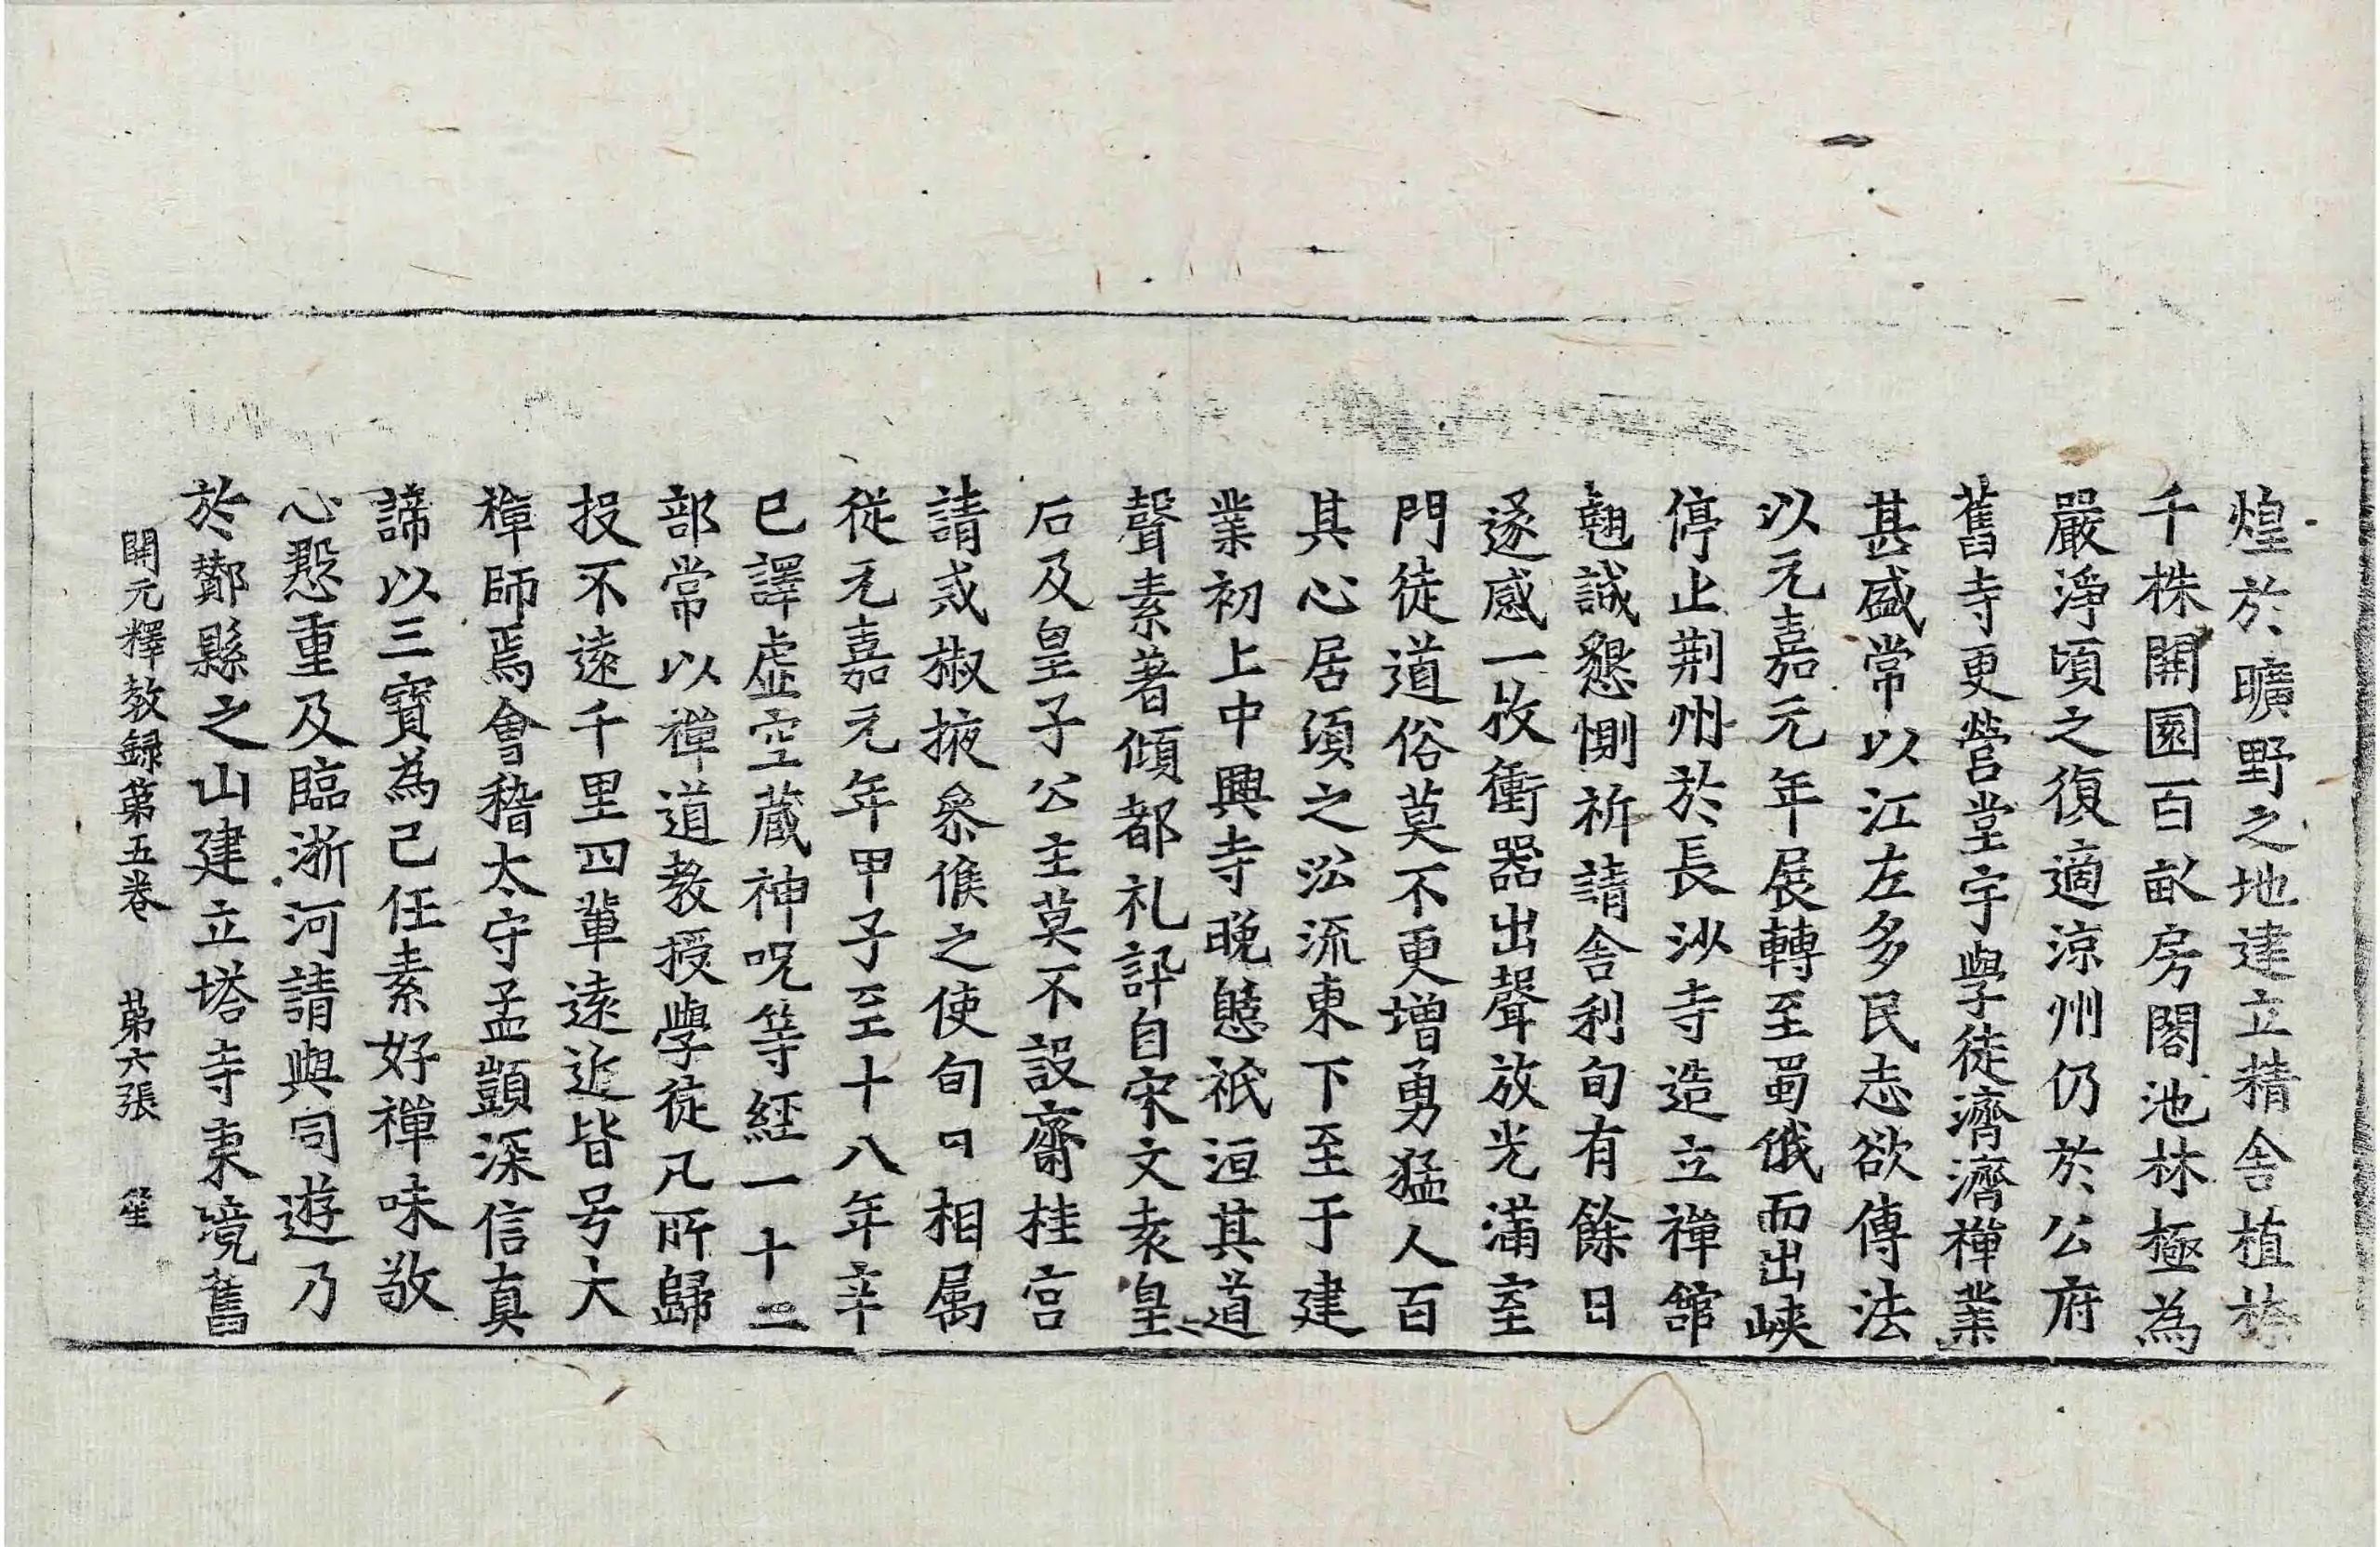 煌於曠野之地建立精舍植㮈
千株開園百畝房閣池林極為
嚴淨頃之復適涼州仍於公府
舊寺更營堂宇學徒濟濟禅業
甚盛常以江左多民志欲傳法
以元嘉元年展轉至蜀俄而出峽
停止荆州於長沙寺造立禅舘
翹誠懇惻祈請舍利旬有餘日
遂感一枚衝器出聲放光滿室
門徒道俗莫不更增勇猛人百
其心居湏之㳂流東下至于建
業初上中興寺晚憇祇洹其道
聲素著傾都礼訊自宋文袁皇
后及皇子公主莫不設齋桂宫
請戒椒掖叅候之使旬日相属
従元嘉元年甲子至十八年辛
巳譯虛空蔵神呪等經一十二
部常以禅道教授學徒凡所歸
投不遠千里四軰逺近皆号大
禅師焉會稽太守孟顗深信真
諦以三寳為己任素好禅味敬
心慇重及臨浙河請與同遊乃
於鄮縣之山建立塔寺東境舊
開元釋教録第五卷 苐六張 笙